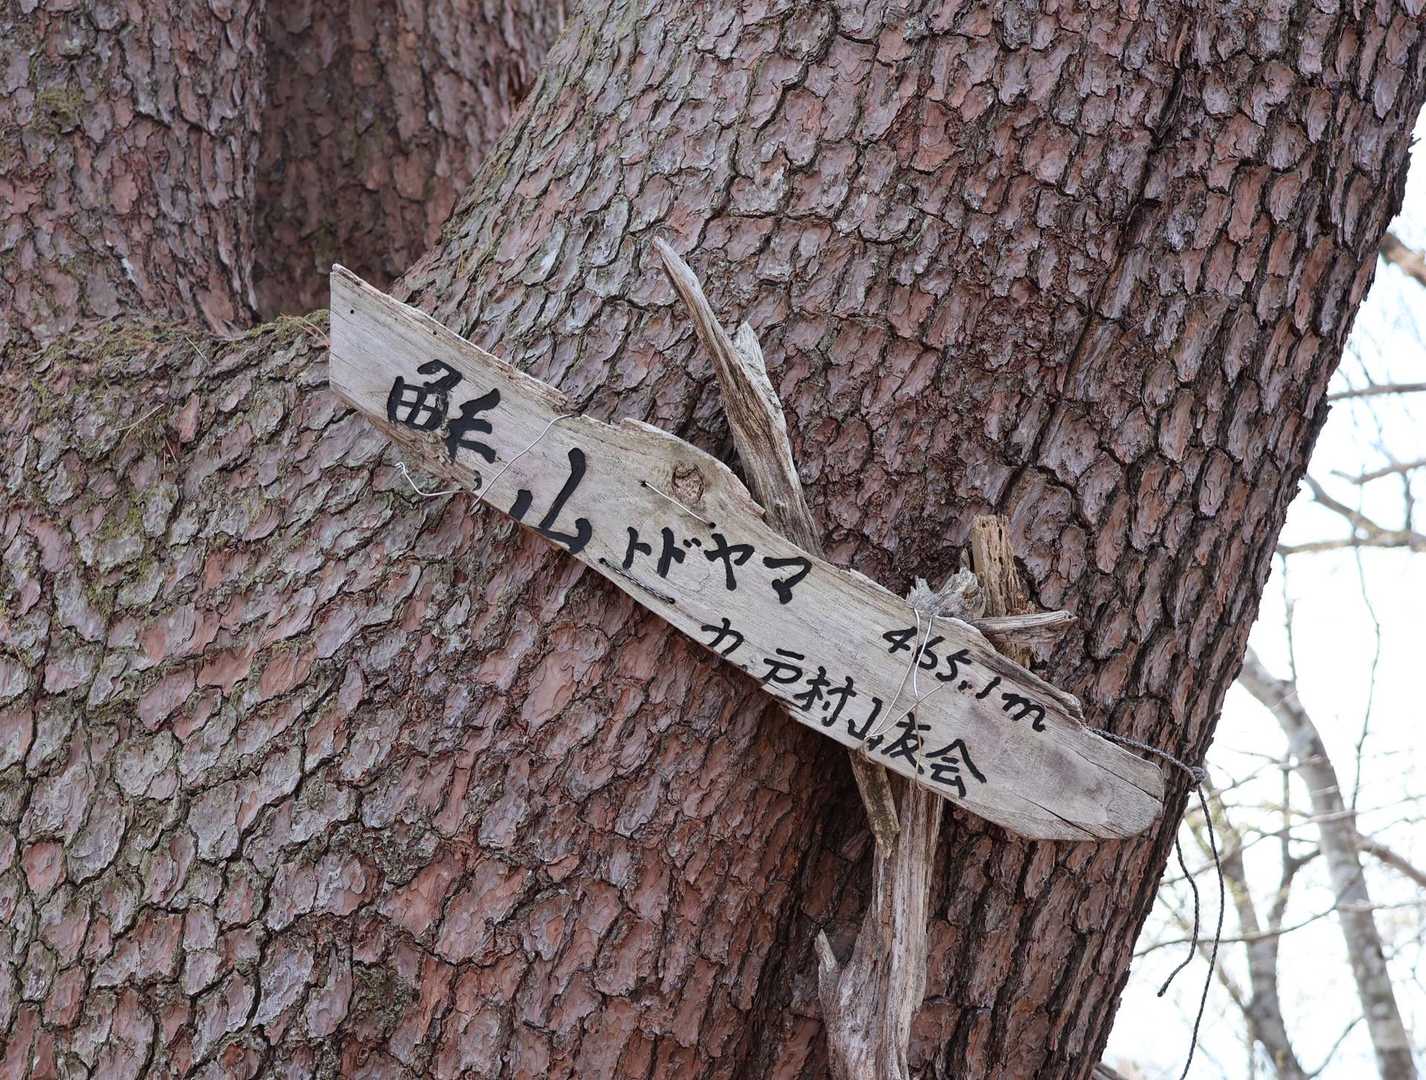 魹山 トドヤマ 465.1m
九戸村山友会